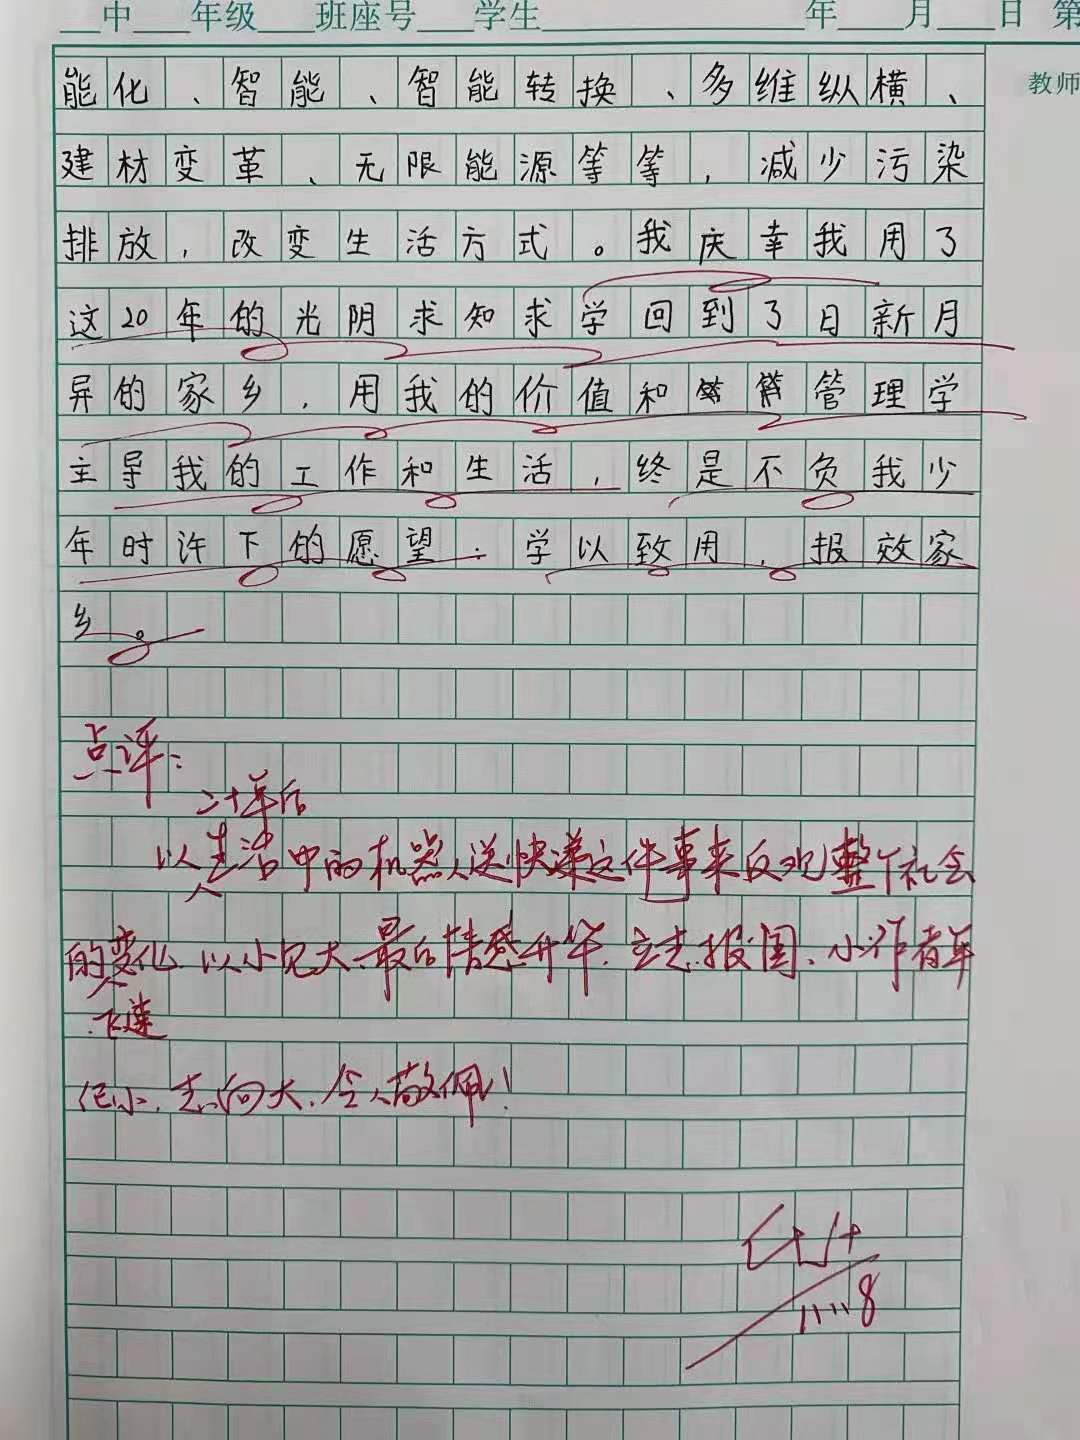 中 年级 班座号 学生 年 月 日 第
教师
能化、智能、智能转换、多维纵横、
建材变革、无限能源等等，减少污染
排放，改变生活方式。我庆幸我用了
这20年的光阴求知求学回到了日新月
异的家乡，用我的价值和管理学
主导我的工作和生活，终是不负我少
年时许下的愿望：学以致用，报效家
乡。
点评：
二十年后
以生活中的机器人送快递这件事来反观整个社会
的变化，以小见大，最后情感升华，立志报国，小作者年
飞速
纪小，志向大，令人敬佩！
11.8